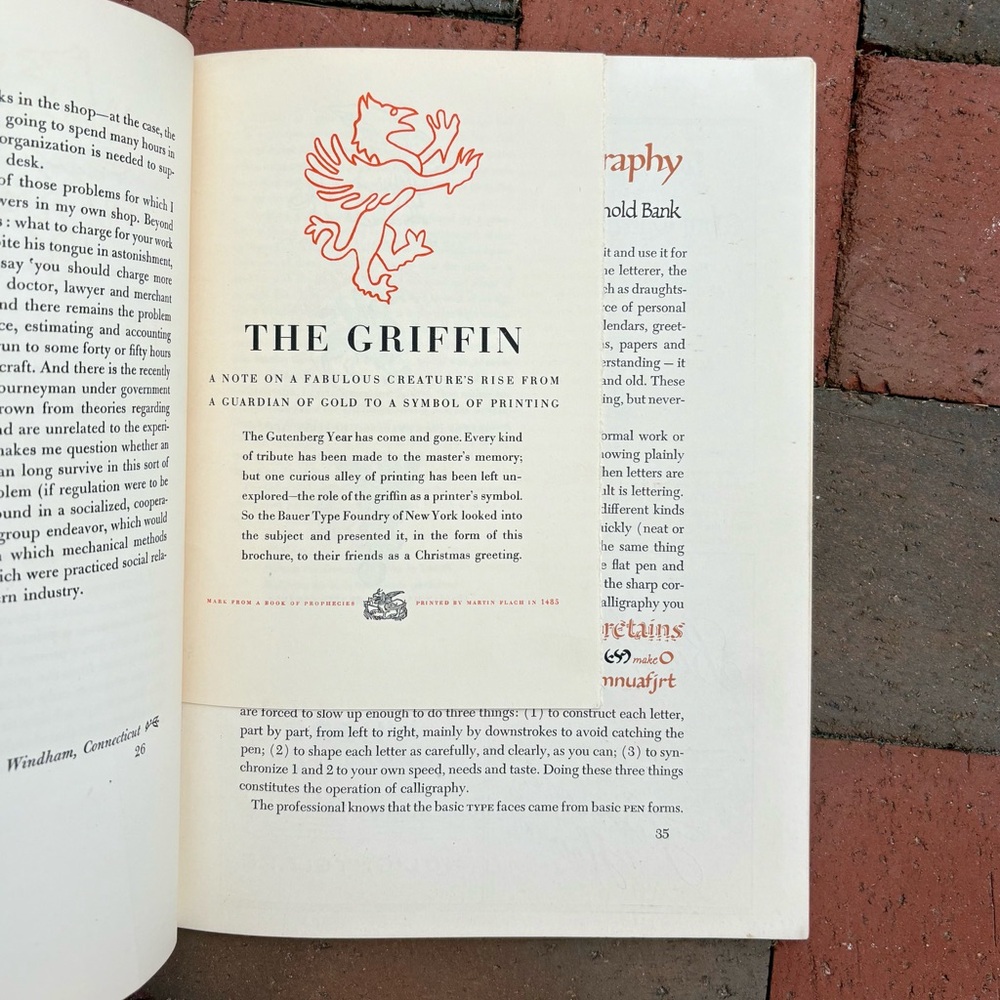 ks in the shop—at the case, the
going to spend many hours in
organization is needed to sup-
desk.
of those problems for which I
vers in my own shop. Beyond
s: what to charge for your work
ite his tongue in astonishment,
say 'you should charge more
doctor, lawyer and merchant
nd there remains the problem
ce, estimating and accounting
run to some forty or fifty hours
craft. And there is the recently
ourneyman under government
rown from theories regarding
nd are unrelated to the experi-
makes me question whether an
an long survive in this sort of
blem (if regulation were to be
ound in a socialized, coopera-
group endeavor, which would
which mechanical methods
ich were practiced social rela-
ern industry.
Windham, Connecticut
26
THE GRIFFIN
A NOTE ON A FABULOUS CREATURE'S RISE FROM
A GUARDIAN OF GOLD TO A SYMBOL OF PRINTING
The Gutenberg Year has come and gone. Every kind
of tribute has been made to the master's memory;
but one curious alley of printing has been left un-
explored—the role of the griffin as a printer's symbol.
So the Bauer Type Foundry of New York looked into
the subject and presented it, in the form of this
brochure, to their friends as a Christmas greeting.
MARK FROM A BOOK OF PROPHECIES PRINTED BY MARTIN FLACH IN 1485
raphy
nold Bank
it and use it for
ne letterer, the
ch as draughts-
rce of personal
lendars, greet-
s, papers and
erstanding — it
and old. These
ing, but never-
ormal work or
nowing plainly
hen letters are
ult is lettering.
different kinds
uickly (neat or
he same thing
e flat pen and
the sharp cor-
alligraphy you
retains
make O
mnuafjrt
are forced to slow up enough to do three things: (1) to construct each letter,
part by part, from left to right, mainly by downstrokes to avoid catching the
pen; (2) to shape each letter as carefully, and clearly, as you can; (3) to syn-
chronize 1 and 2 to your own speed, needs and taste. Doing these three things
constitutes the operation of calligraphy.
The professional knows that the basic TYPE faces came from basic PEN forms.
35